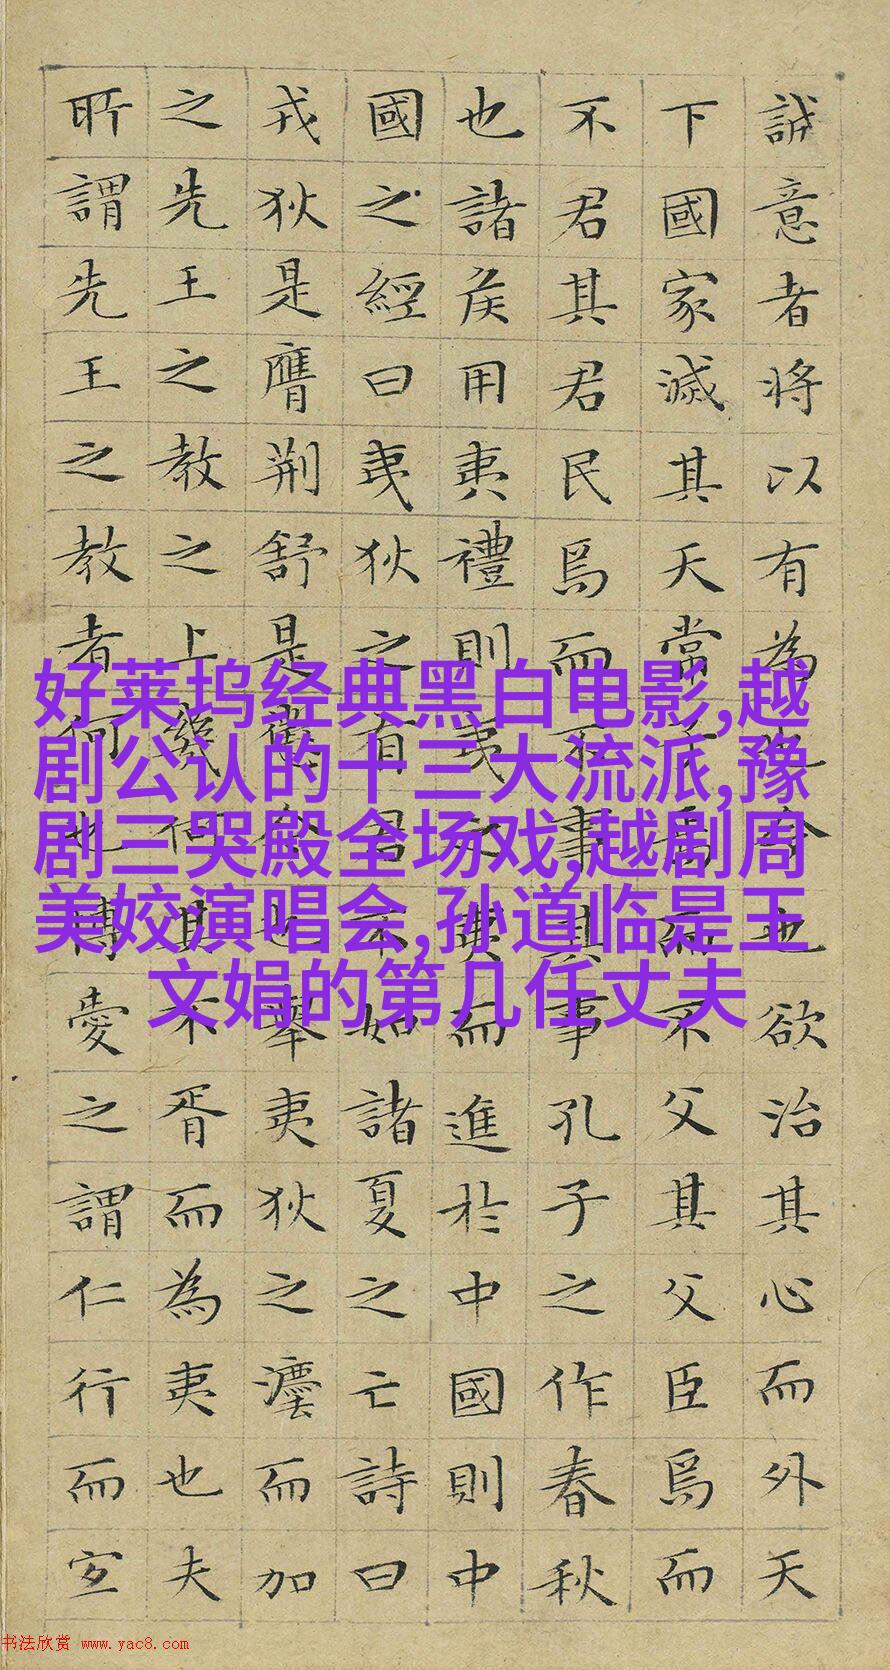 誠意者将以有為也今也欲治其心而外天
下國家滅其天當子焉而不父其父臣焉而
不君其君民焉而不事其事孔子之作春秋
也諸侯用夷禮則夷之夷而進於中國則中
國之經曰夷狄之有君不如諸夏之亡詩曰
戎狄是膺荆舒是懲今也舉夷狄之灋而加
之先王之教之上幾何其不胥而為夷也夫
所謂先王之教者何也博愛之謂仁行而宜
好莱坞经典黑白电影,越
剧公认的十三大流派,豫
剧三哭殿全场戏,越剧周
美姣演唱会,孙道临是王
文娟的第几任丈夫
书法欣赏 www.yac8.com